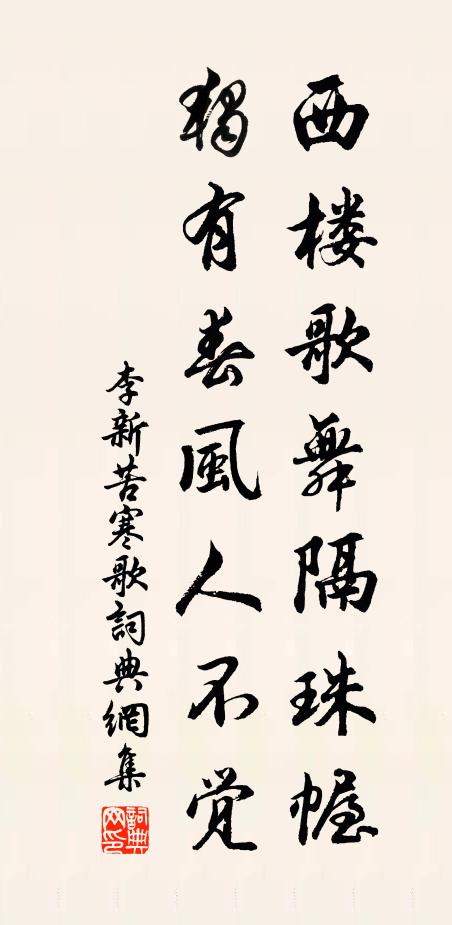 西楼歌舞隔珠幄
独有春風人不觉
李新苦寒歌詞典網集
詞典網印